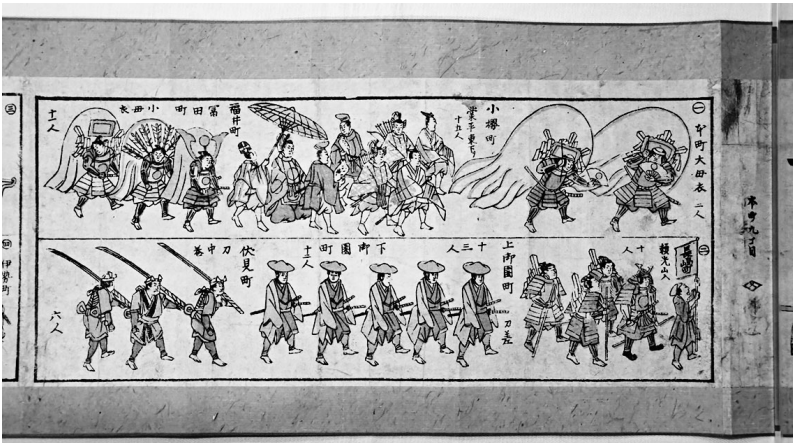 ㊀
本町大母衣 二人
小櫻町
業平東下り
十五人
福井町
冨田町 小母衣
十一人
㊁
頼光山入
十人
上御園町 刀差
十三人
下御園町
伏見町
刀中巻
六人
㊂
㊃ 伊勢町